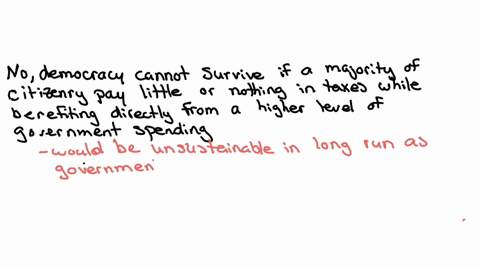 No, democracy cannot survive if a majority of
citizenry pay little or nothing in taxes while
benefiting directly from a higher level of
government spending
-would be unsustainable in long run as
governmen